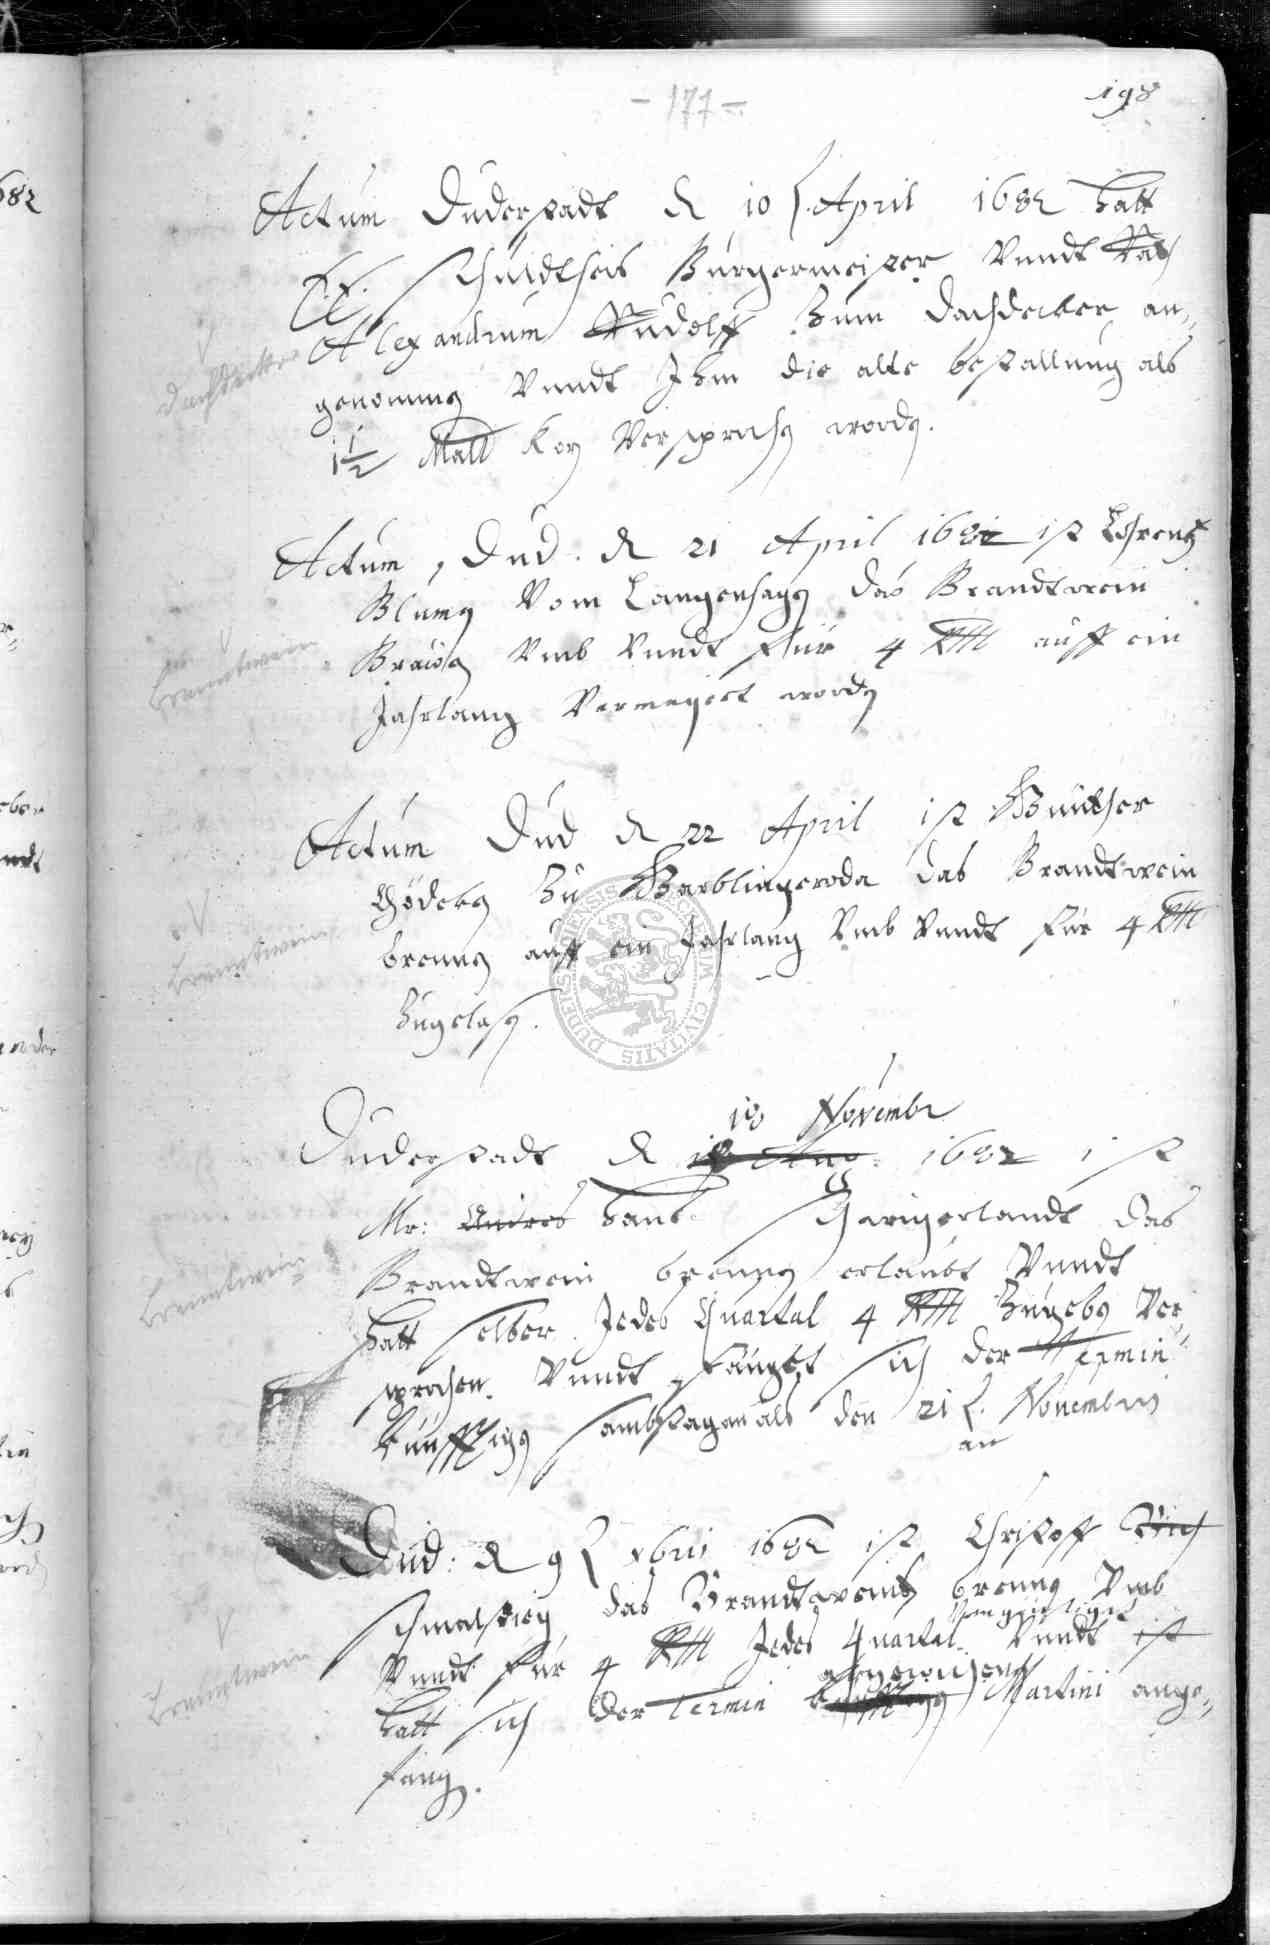 - 177 -
198
Actum Duderstadt d 10 April 1682 hatt
E. E. Schuldtheis Bürgermeister Vundt Rath
Alexandrum Rudolff Zum Dachdecker an-
genommen Vundt Ihm die alte bestallung als
1 1/2 Malt Korn Versprochen worden.
Dachdecker
Actum, Dud. d 21 April 1682 ist Lohrentz
Blumen Vom Langenhagen das Brandtwein
Brawen Vmb Vundt Für 4 Rth auff ein
Jahrlang Vermeyert worden
Branntwein
Actum Dud d 22 April ist Günther
Gödeken Zu Gerblingeroda das Brandtwein
brennen auff ein Jahrlang Vmb Vundt Für 4 Rth
Zugelasen.
Branntwein
DUDERSTADIENSIS CIVITATIS
18 Novembr
Duderstadt d 18 Aug: 1682 ist
Mr: Andres Hans Haringerlandt das
Brandtwein brennen erlaubt Vundt
hatt selber Jedes Quartal 4 Rth Zugeben Ver-
sprochen. Vundt Fänget sich der Termin
Künfftigen Sambstagen als den 21 Novembris
an
Branntwein
Dud: d 9 xbris 1682 ist Christoff
Schmalstieg das Brandtweins brennen Vmb
Vergünstiget
Vundt Für 4 Rth Jedes Quartal Vundt ist
hatt sich der Termin Martini ange-
fangen.
Branntwein
682